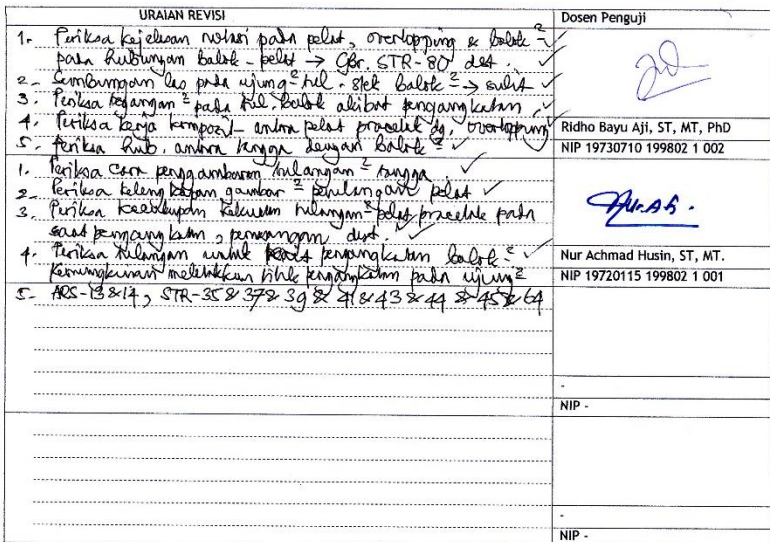 URAIAN REVISI
Dosen Penguji
1. Periksa kejelasan notasi pada pelat, overtopping & balok ²
pada hubungan balok - pelat → Gbr. STR-80 dst. ✓
2. Sambungan las pada ujung ² tul. stek balok ² → sulit ✓
3. Periksa tegangan ² pada tul. balok akibat pengangkatan ✓
4. Periksa kerja komposit antara pelat pracetak dg. overtopping ✓
5. Periksa hub. antara tangga dengan balok ² ✓
Ridho Bayu Aji, ST, MT, PhD
NIP 19730710 199802 1 002
1. Periksa cara penggambaran tulangan ² tangga. ✓
2. Periksa kelengkapan gambar ² penulangan pelat ✓
3. Periksa kecukupan kekuatan tulangan ² pelat pracetak pada
saat pengangkatan, pemasangan dst. ✓
4. Periksa tulangan untuk pengangkatan balok ² ✓
kemungkinan meletakkan titik pengangkatan pada ujung ²
5. ARS-13&14, STR-35&37&39&41&43&44&45&64
Nur Achmad Husin, ST, MT.
NIP 19720115 199802 1 001
-
NIP -
-
NIP -